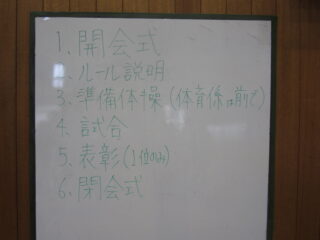 1. 開会式
2. ルール説明
3. 準備体操(体育係は前で)
4. 試合
5. 表彰(1位のみ)
6. 閉会式